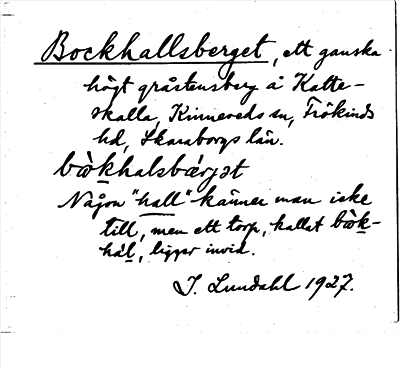 Bockhallsberget, ett ganska
högt gråstensberg å Katte-
skalla, Kinneveds sn, Frökinds
hd, Skaraborgs län.
bòkhalsbærjət
Någon "hall" känner man icke
till, men ett torp, kallat bòk-
hal, ligger invid.
I. Lundahl 1927.